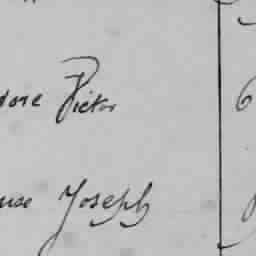 dore Victor 6
use Joseph